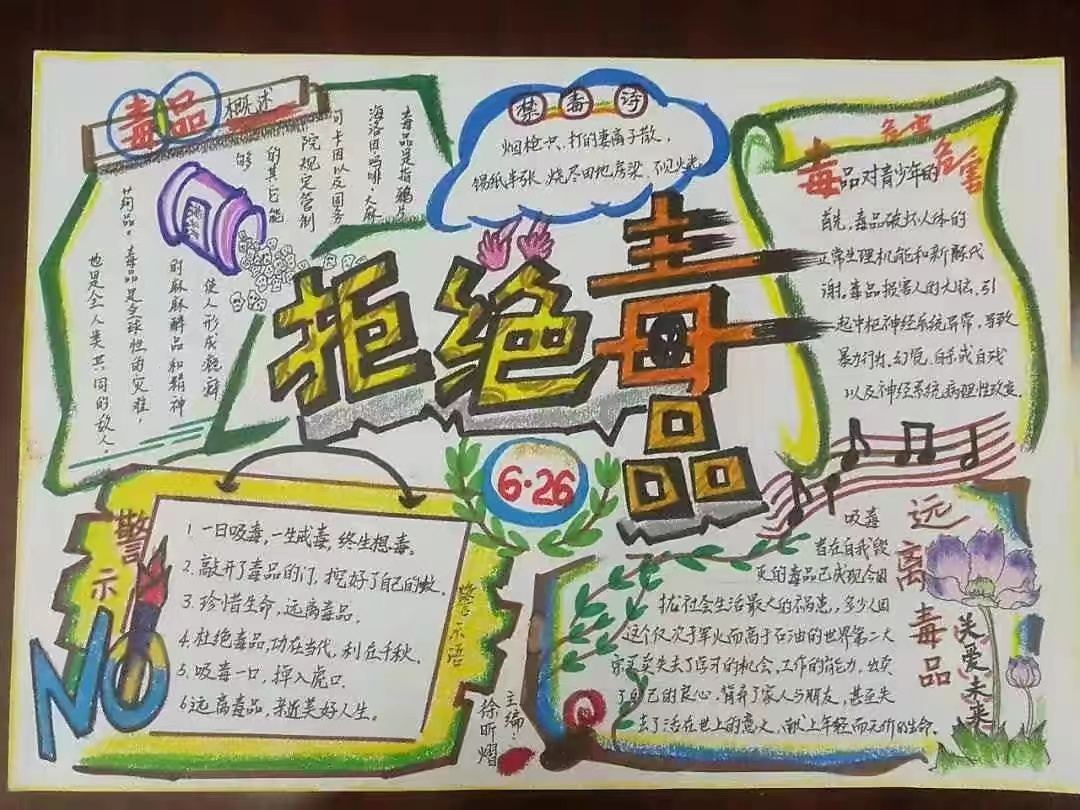 毒品概述
毒品是指鸦片
海洛因吗啡·大麻
可卡因以及国务
院规定管制
的其它能
够
使人形成瘾癖
的麻醉品和精神
药品·毒品是全球性的灾难，
也是全人类共同的敌人。
禁毒诗
烟枪一只、打的妻离子散、
锡纸半张、烧尽田地房梁、不见火光
拒绝毒品
6·26
毒品对青少年的危害
首先，毒品破坏人体的
正常生理机能和新陈代
谢，毒品损害人的大脑，引
起中枢神经系统异常，导致
暴力行为、幻觉、自杀或自残
以及神经系统病理性改变。
警示
NO
1. 一日吸毒，一生戒毒，终生想毒。
2. 敲开了毒品的门，挖好了自己的坟。
3. 珍惜生命，远离毒品。
4. 杜绝毒品，功在当代，利在千秋。
5. 吸毒一口，掉入虎口。
6 远离毒品，亲近美好人生。
警示语
主编：
徐昕熠
远离毒品
关爱未来
吸毒
旨在自我毁
灭的毒品已成现今困
扰社会生活最大的祸患，多少人因
这个仅次于军火而高于石油的世界第二大
买卖失去了的机会、工作的能力、出卖
了自己的良心、背弃了家人与朋友，甚至失
去了活在世上的意义，献上年轻而无价的生命。